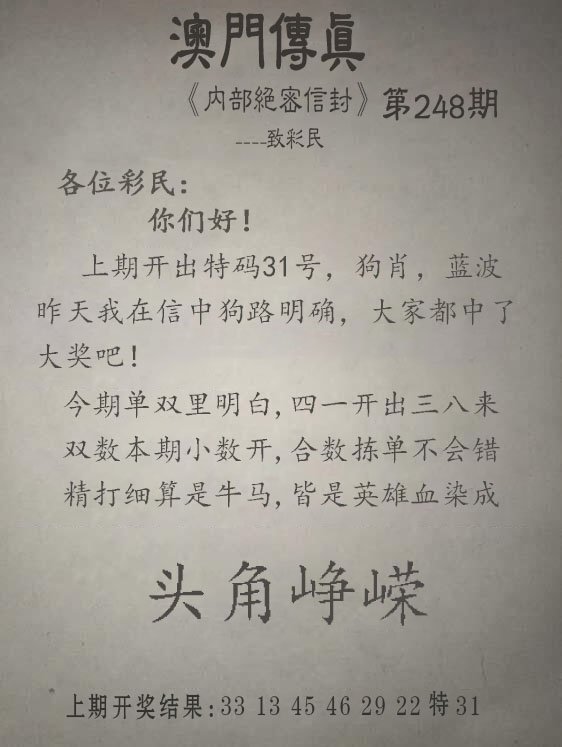 澳門傳眞
《内部絕密信封》第248期
----致彩民
各位彩民：
你们好！
上期开出特码31号，狗肖，蓝波
昨天我在信中狗路明确，大家都中了
大奖吧！
今期单双里明白,四一开出三八来
双数本期小数开,合数拣单不会错
精打细算是牛马,皆是英雄血染成
头角峥嵘
上期开奖结果:33 13 45 46 29 22特31